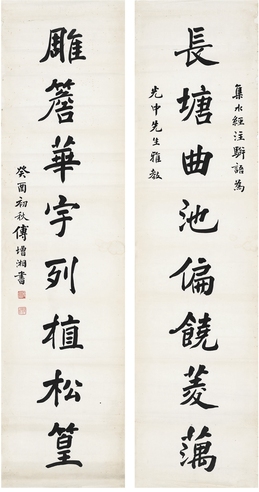 集水經注駢語爲
光中先生雅教
長塘曲池偏饒菱藕
雕簷華宇列植松篁
癸酉初秋傅增湘書